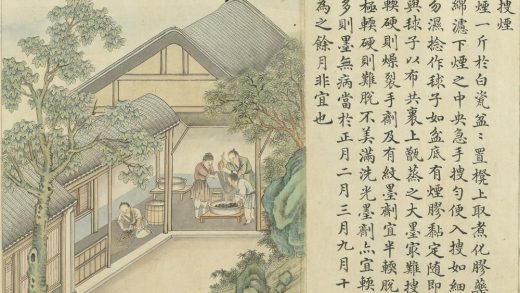 搜煙
煙一斤於白瓷盆〻置櫈上取煮化膠藥
綿濾下煙之中央急手搜勻便入搜如細
勿濕捻作球子如盆底有煙膠黏定隨即
與球子以布共裹上甑蒸之大墨冣難搜
輭硬則燥裂手劑及有紋墨劑宜半輭脫
極輭硬則難脫不美滿洗光墨劑亦宜輭
多則墨無病當於正月二月三月九月十
為之餘月非宜也